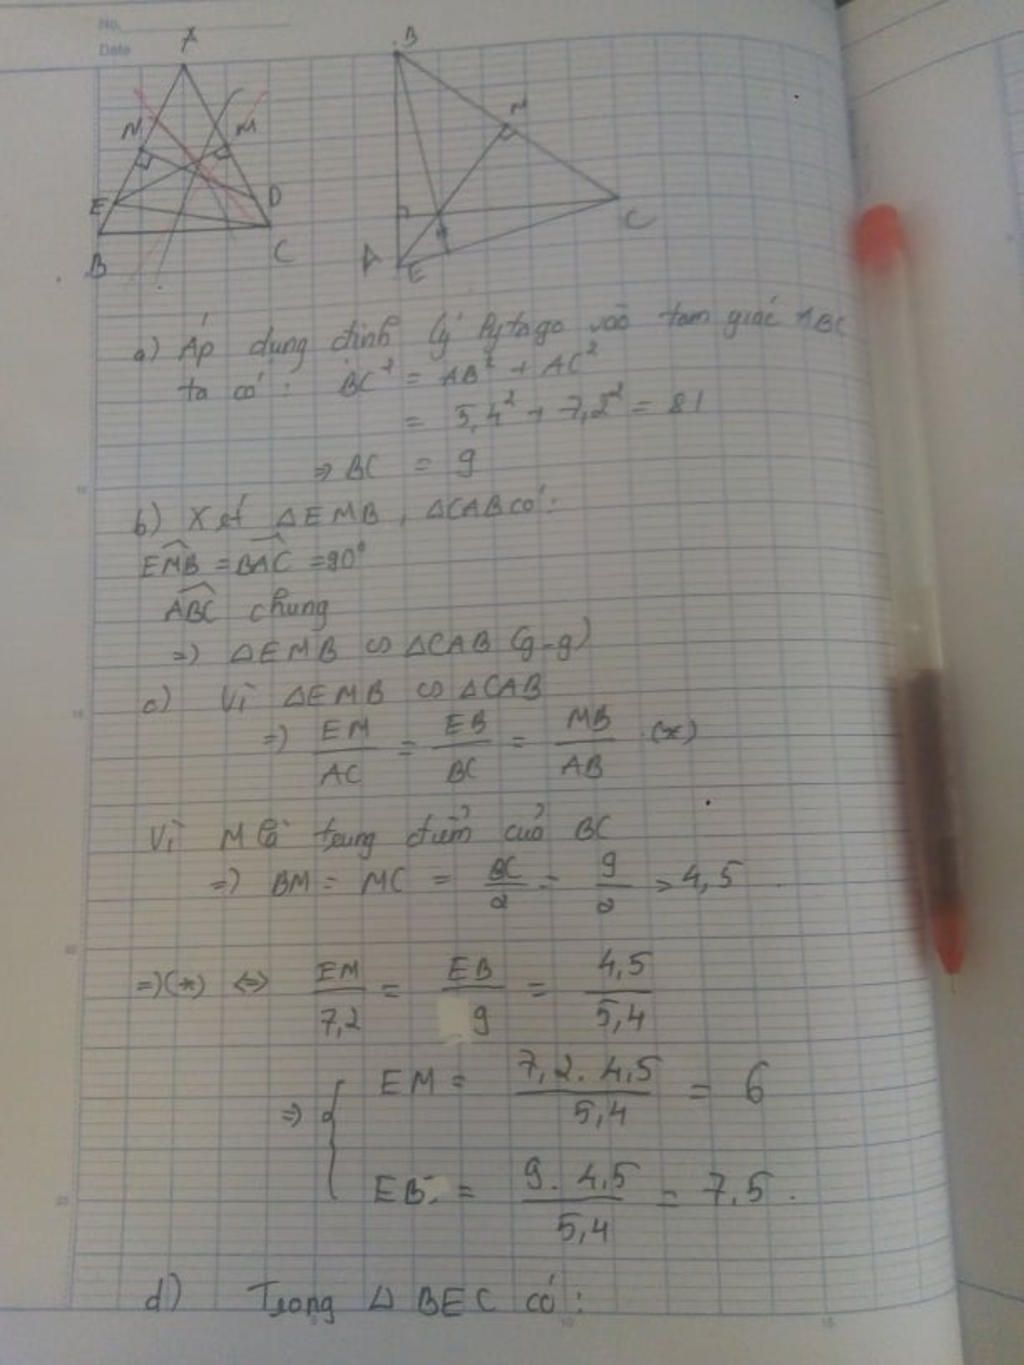 No.
Date
A
B
N
M
M
E
D
C
B
C
A
E
a) Áp dụng định lý Pytago vào tam giác ABC
ta có: BC² = AB² + AC²
= 5,4² + 7,2² = 81
⇒ BC = 9
b) Xét ΔEMB, ΔCAB có:
EMB = BAC = 90°
ABC chung
=) ΔEMB ∽ ΔCAB (g-g)
c) Vì ΔEMB ∽ ΔCAB
=) EM/AC = EB/BC = MB/AB (*)
Vì M là trung điểm của BC
=) BM = MC = BC/2 = 9/2 = 4,5
=)(*) ⇔ EM/7,2 = EB/9 = 4,5/5,4
=) { EM = 7,2. 4,5/5,4 = 6
EB = 9. 4,5/5,4 = 7,5.
d) Trong Δ BEC có:
10
15